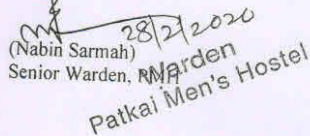 28/2/2020
(Nabin Sarmah)
Senior Warden, PMH
Warden
Patkai Men's Hostel